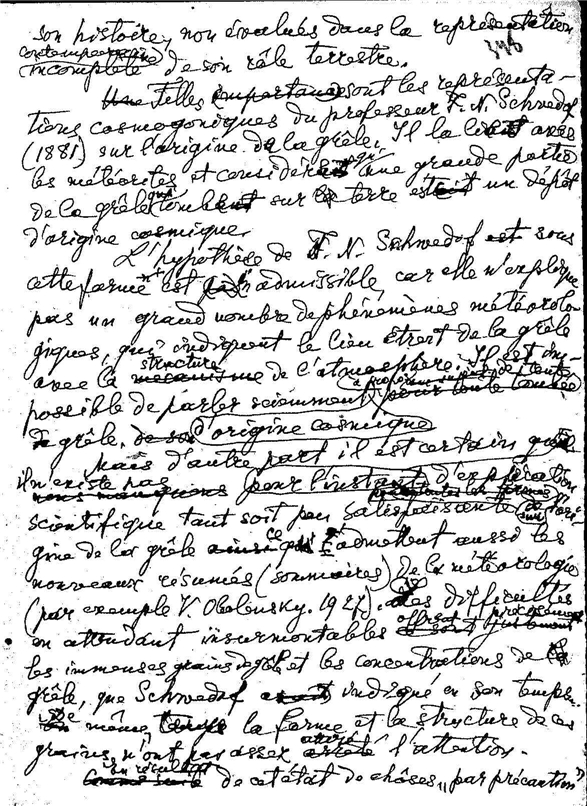 son histoire, non évalués dans la représentation
346
contemporaine
incomplète de son rôle terrestre.
Une Telles importance sont les représenta-
tions cosmogoniques du professeur F. N. Schwedof
(1881) sur l'origine de la grêle. Il la liait avec
les météorites et considérait qu'une grande partie
de la grêle qui tombe sur la terre est un dépôt
d'origine cosmique.
L'hypothèse de F. N. Schwedof est sous
cette forme n'est pas admissible, car elle n'explique
pas un grand nombre de phénomènes météorolo-
giques, qui indiquent le lien étroit de la grêle
structure
avec la mecanisme de l'atmosphère. Il est im-
à propos
de toute
possible de parler sciemment pour toute tombée
de grêle, de son d'origine cosmique
Mais d'autre part il est certain que
il n'existe pas
nous manquons pour l'instant d'explication
scientifique tant soit peu satisfaisante de l'ori
gine de la grêle ainsi ce qu'admettent aussi les
nouveaux résumés (sommaires) de la météorologie
(par exemple V. Obolensky. 1927). des difficultés
offrent précisément
en attendant insurmontables et sont justement
les immenses grains de grêle et les concentrations de la
grêle, que Schwedof avait indiqué en son temps.
De même, temps la forme et la structure de ces
grains n'ont pas assez arrêté l'attention.
attiré
en résultat
Comme suite de cet état de chôses, "par précaution"